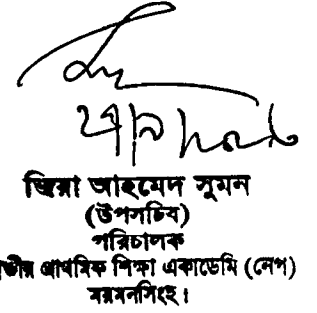 জিয়া আহমেদ সুমন
(উপসচিব)
পরিচালক
প্রাথমিক শিক্ষা একাডেমি (নেপ)
ময়মনসিংহ।